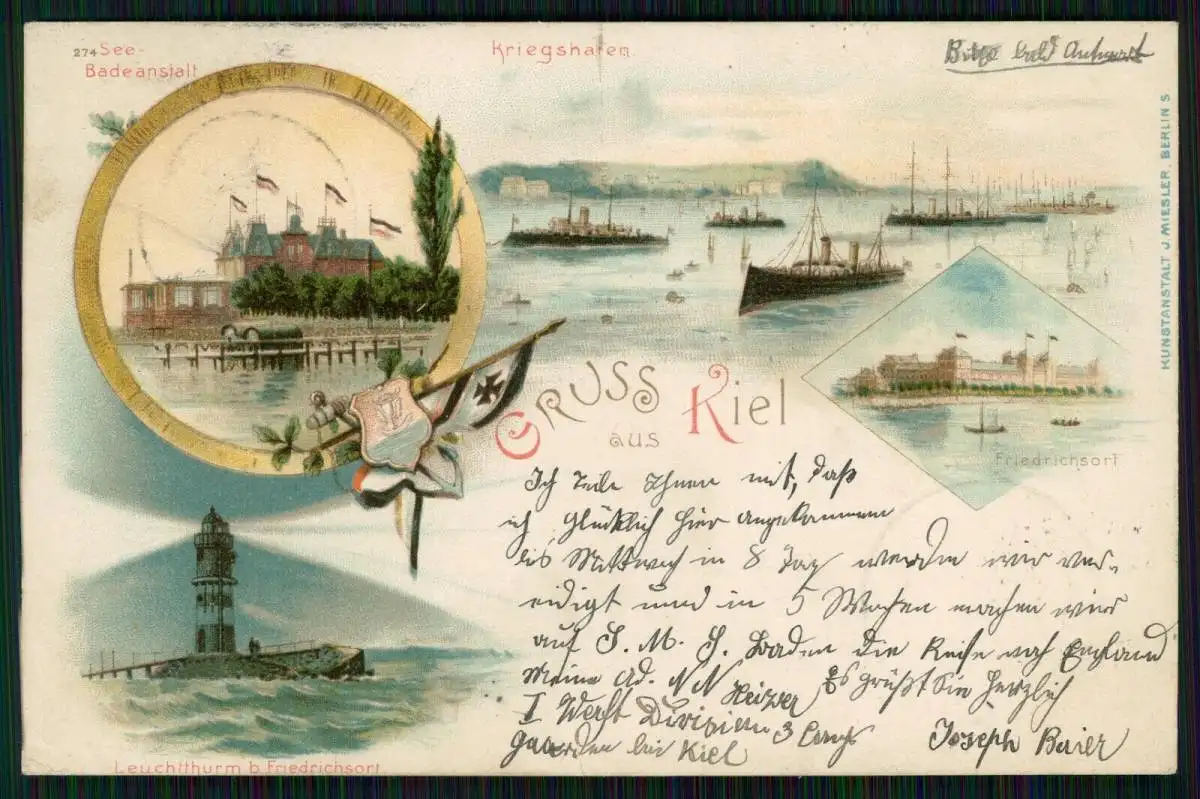 274 See-
Badeanstalt
Kriegshafen
Bitte bald Antwort
KUNSTANSTALT J. MIESLER, BERLIN S
GRUSS
aus
Kiel
Friedrichsort
Ich teile Ihnen mit, daß
ich glücklich hier angekommen
bis Mittwoch in 8 Tag werden wir ver-
eidigt und in 5 Wochen machen wir
auf S. M. S. Baden die Reise nach England
Meine Ad. N N Heizer
Es grüßt Sie herzlich
I Werft Division 3 Comp
Gaarden bei Kiel
Joseph Baier
Leuchtthurm b. Friedrichsort.